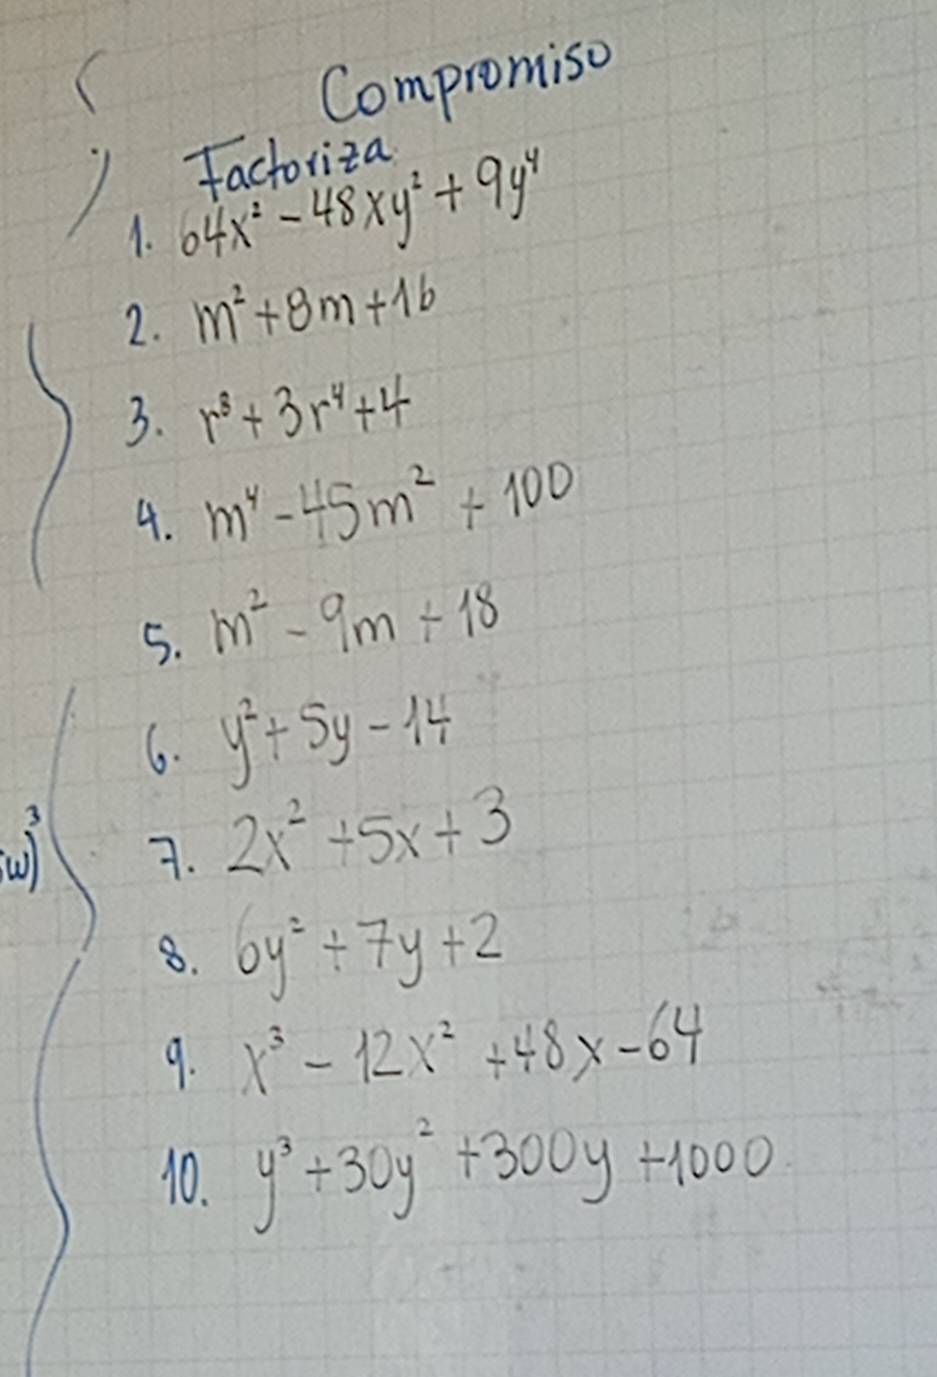 Compromiso
Factoriza
1. 64x² - 48xy² + 9y⁴
2. m² + 8m + 16
3. r⁸ + 3r⁴ + 4
4. m⁴ - 45m² + 100
5. m² - 9m + 18
6. y² + 5y - 14
7. 2x² + 5x + 3
w)³
8. 6y² + 7y + 2
9. x³ - 12x² + 48x - 64
10. y³ + 30y² + 300y + 1000